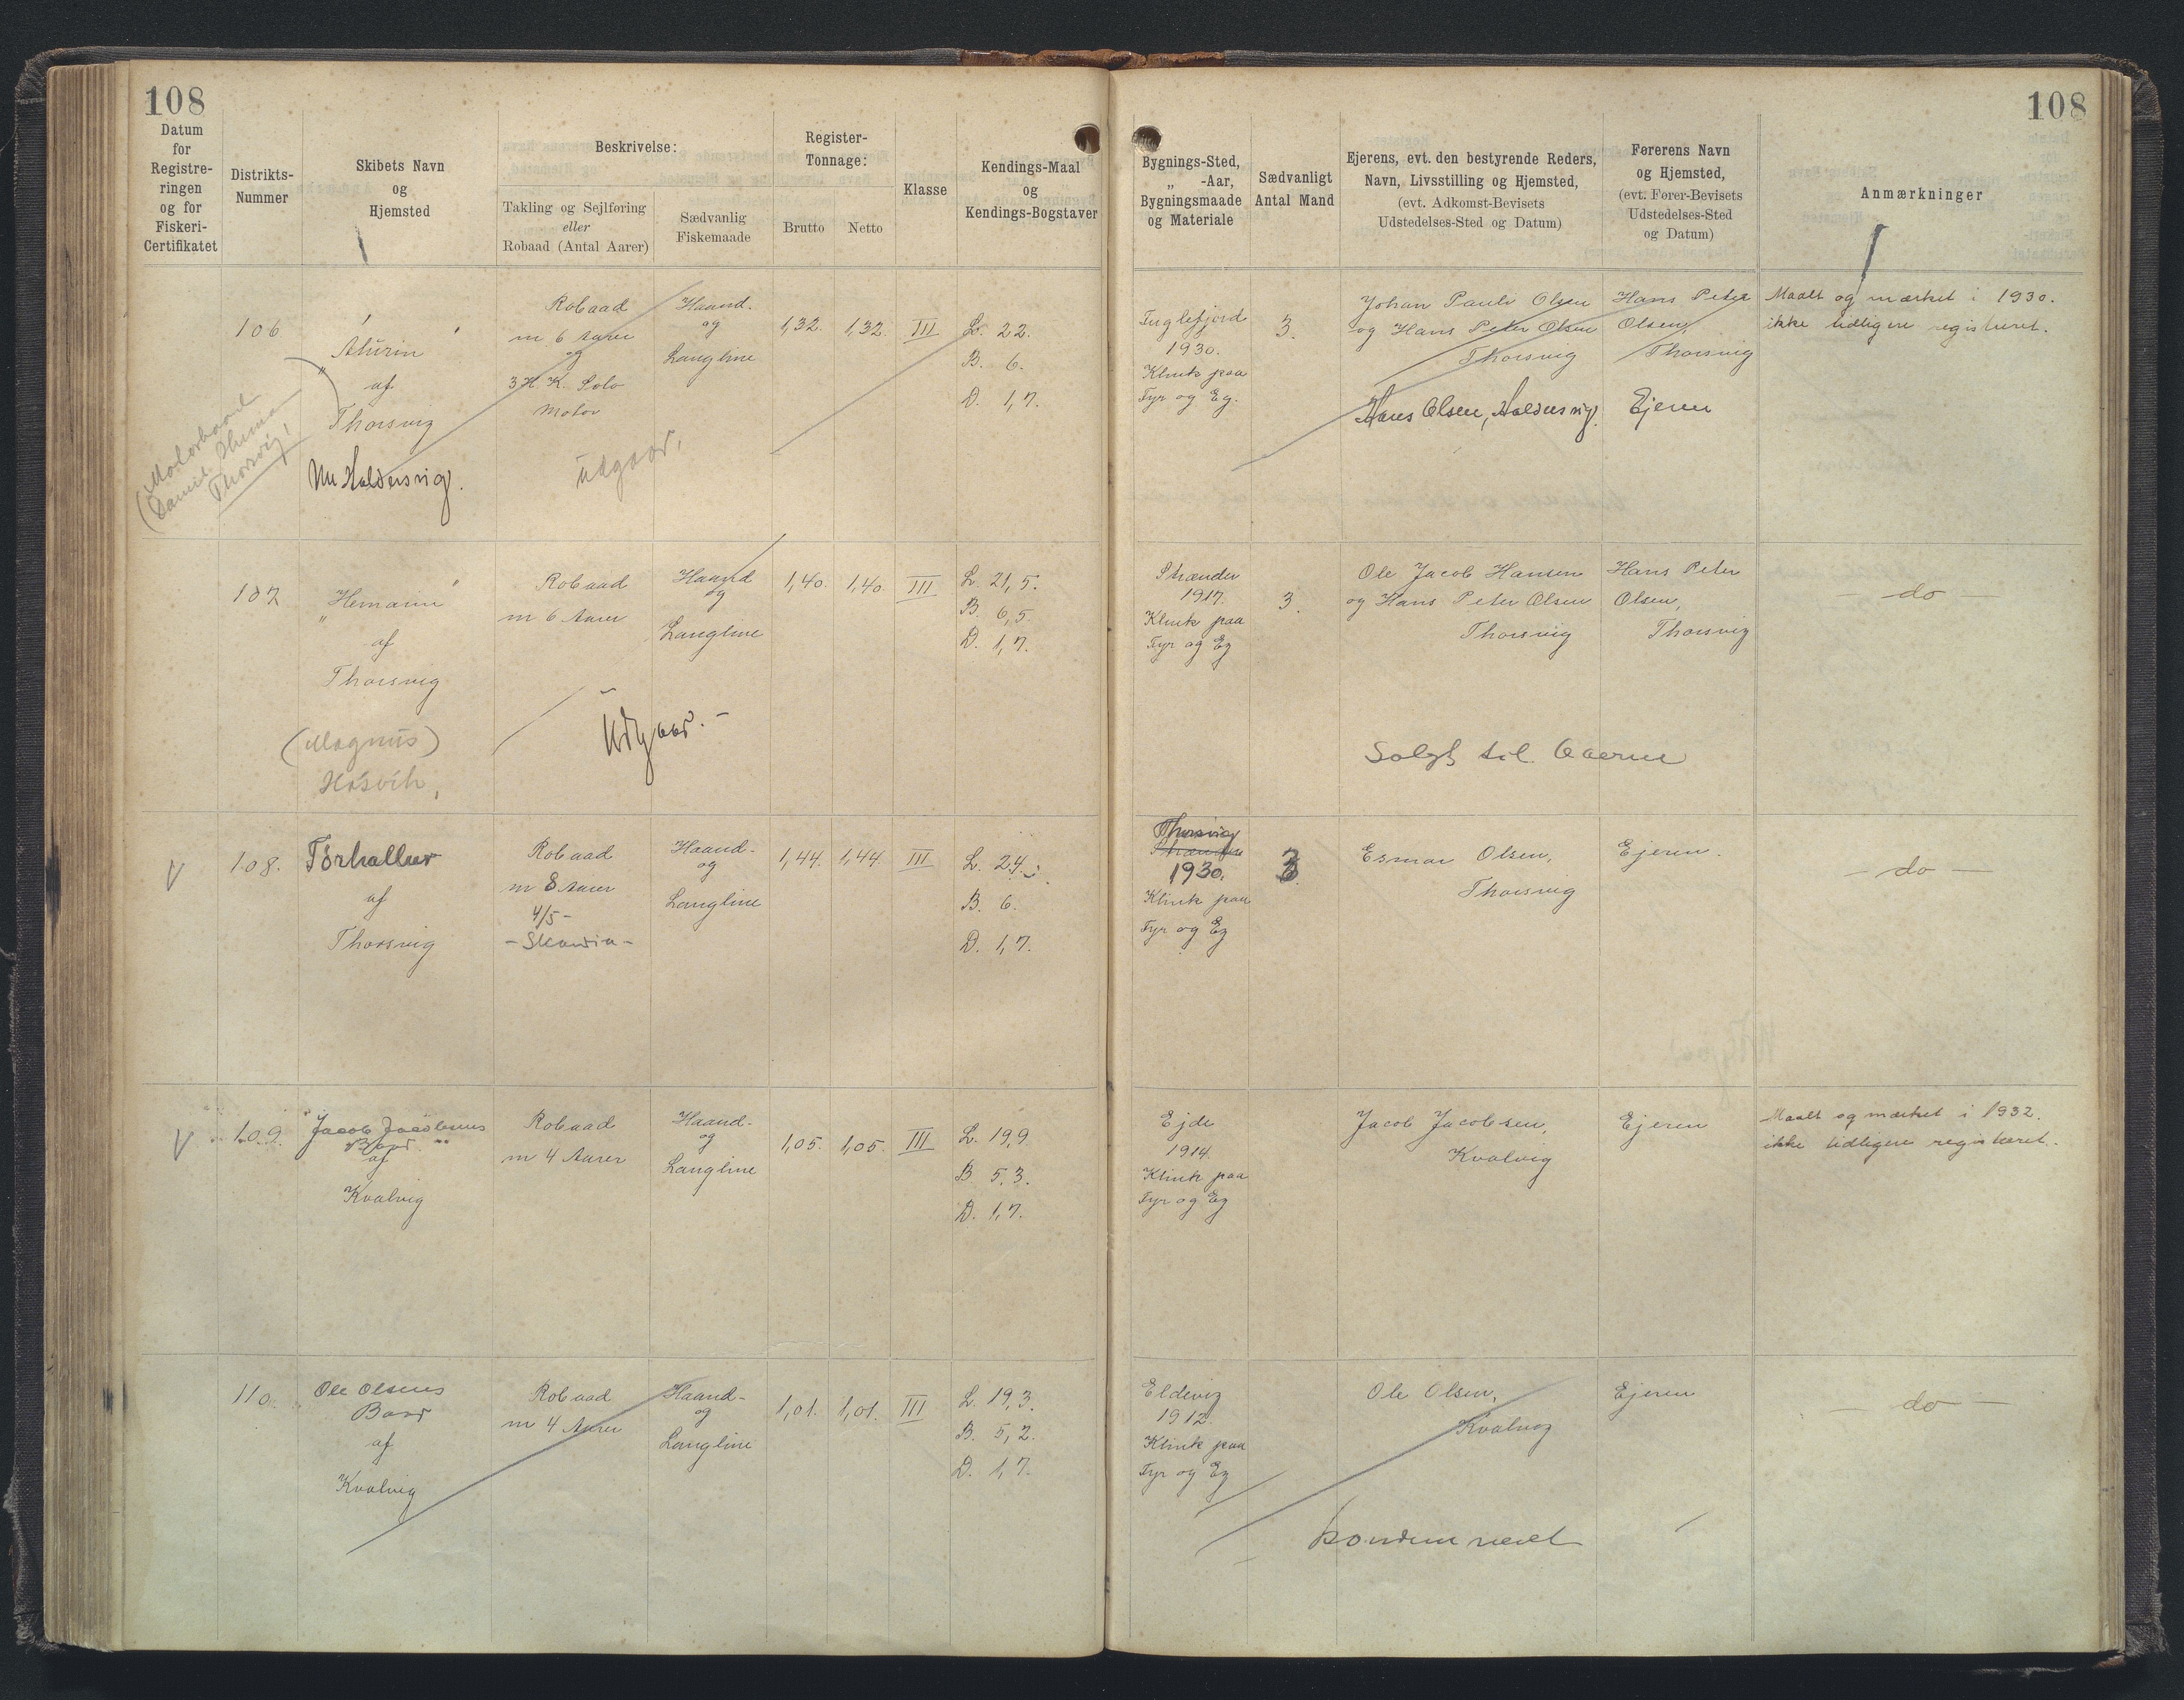 108
108
Datum
for
Registre-
ringen
og for
Fiskeri-
Certifikatet
Distrikts-
Nummer
Skibets Navn
og
Hjemsted
Beskrivelse:
Takling og Sejlføring
eller
Robaad (Antal Aarer)
Sædvanlig
Fiskemaade
Register-
Tonnage:
Brutto Netto
Klasse
Kendings-Maal
og
Kendings-Bogstaver
Bygnings-Sted,
„ -Aar,
Bygningsmaade
og Materiale
Sædvanligt
Antal Mand
Ejerens, evt. den bestyrende Reders,
Navn, Livsstilling og Hjemsted,
(evt. Adkomst-Bevisets
Udstedelses-Sted og Datum)
Førerens Navn
og Hjemsted,
(evt. Fører-Bevisets
Udstedelses-Sted
og Datum)
Anmærkninger
106
af
Thorsvig
Nu Haldersvig.
(Motorbaad
Thorsvig!
Robaad
m 6 Aarer
og
3 H.K. Solo
Motor
Udgaar,
Haand-
og
Langline
1,32. 1,32. III
L. 22.
B. 6.
D. 1,7.
Fuglefjord
1930.
Klink paa
Fyr og Eg.
3.
Johan Pauli Olsen
og Hans Peter Olsen
Thorsvig
Hans Olsen, Haldersvig.
Hans Peter
Olsen,
Thorsvig
Ejeren
Maalt og mærket i 1930.
ikke tidligere registreret.
107
„Hemann"
af
Thorsvig
(Magnus)
Hósvík,
Robaad
m 6 Aarer
Udgaar.-
Haand
og
Langline
1,40. 1,40. III
L. 21,5.
B. 6,5
D. 1,7.
Strænder
1917.
Klink paa
Fyr og Eg
3.
Ole Jacob Hansen
og Hans Peter Olsen
Thorsvig
Solgt til
Hans Peter
Olsen,
Thorsvig
— do —
V
108.
Tórhallur
af
Thorsvig
Robaad
m 8 Aarer
4/5 -
- Skandia -
Haand-
og
Langline
1,44. 1,44. III
L. 24.
B. 6.
D. 1,7.
Thorsvig
Strænder
1930.
Klink paa
Fyr og Eg
3.
Esmar Olsen,
Thorsvig
Ejeren.
— do —
V
109.
"Jacob Jacobsens
Baad"
af
Kvalvig
Robaad
m 4 Aarer
Haand-
og
Langline
1,05. 1,05. III
L. 19,9
B. 5,3.
D. 1,7.
Ejde
1914.
Klink paa
Fyr og Eg
Jacob Jacobsen,
Kvalvig
Ejeren
Maalt og mærket i 1932.
ikke tidligere registreret.
110.
Ole Olsens
Baad
af
Kvalvig
Robaad
m 4 Aarer
Haand-
og
Langline
1,01. 1,01. III
L. 19,3.
B. 5,2.
D. 1,7.
Eldevig
1912.
Klink paa
Fyr og Eg
Ole Olsen,
Kvalvig
Kondemneret
Ejeren
— do —